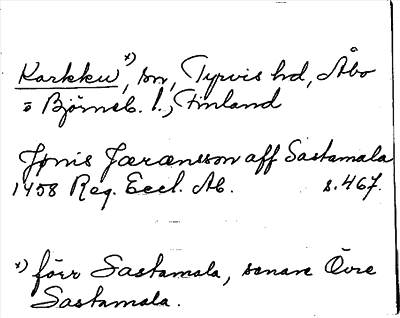 Karkku *), sn, Tyrvis hd, Åbo
o Björneb. l., Finland
Jønis Jæransson aff Sastamala
1458 Reg. Eccl. Ab. s. 467.
*) förr Sastamala, senare Övre
Sastamala.